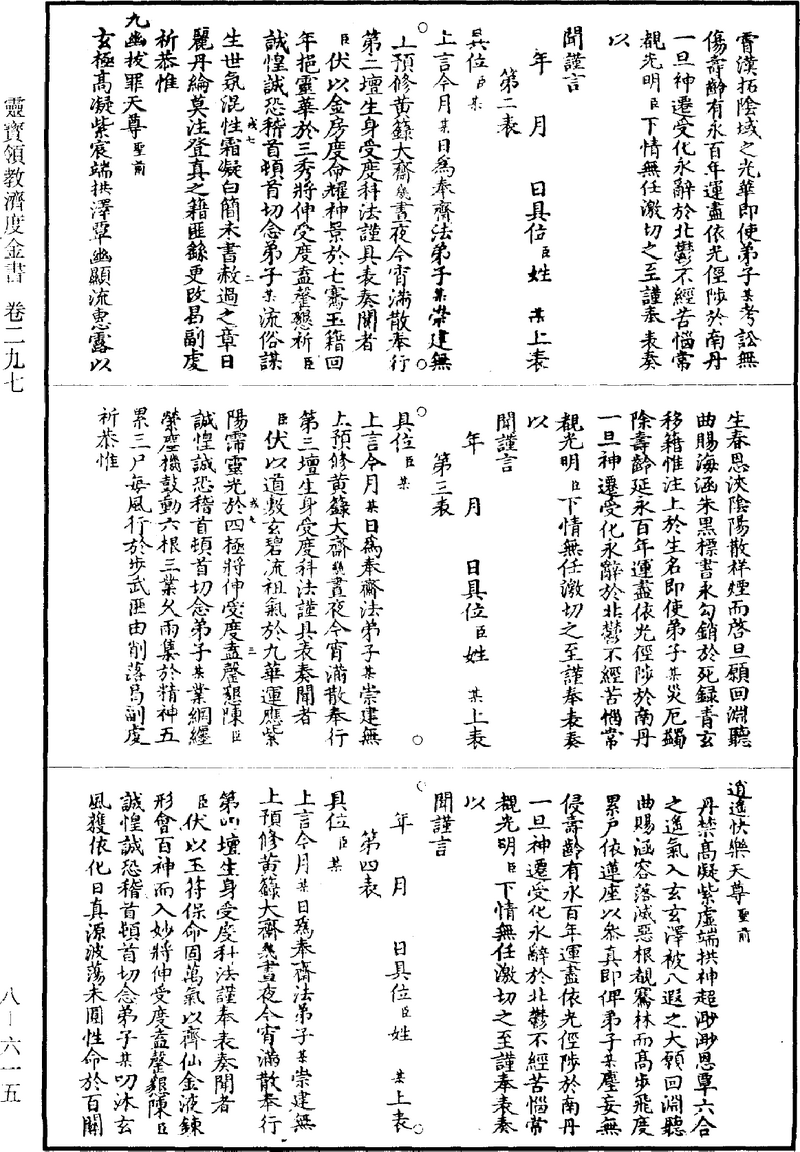 霄漢拓陰域之光華即使弟子某考訟無
傷壽齡有永百年運盡依光徑陟於南丹
一旦神遷受化永辭於北鬱不經苦惱常
覩光明臣下情無任激切之至謹奉表奏
以
聞謹言
年 月 日具位臣姓 某上表
第二表
具位臣某
上言今月某日爲奉齋法弟子某崇建無
上預修黄籙大齋幾晝夜今宵滿散奉行
第二壇生身受度科法謹具表奏聞者
臣伏以金房度命耀神景於七騫玉籍回
年挹靈華於三秀將伸受度盍罄懇祈臣
誠惶誠恐稽首頓首切念弟子某流俗謀
生世氛混性霜凝白簡未書赦過之章日
麗丹綸莫注登真之籍匪繇更改曷副虔
祈恭惟
九幽拔罪天尊聖前
玄極高凝紫宸端拱澤覃幽顯流惠露以
生春恩浹陰陽散祥煙而啓旦願回淵聽
曲賜海涵朱黑標書永勾銷於死録青玄
移籍惟注上於生名即使弟子某災厄蠲
除壽齡延永百年運盡依光徑陟於南丹
一旦神遷受化永辭於北鬱不經苦惱常
覩光明臣下情無任激切之至謹奉表奏
以
聞謹言
年 月 日具位臣姓 某上表
第三表
具位臣某
上言今月某日爲奉齋法弟子某崇建無
上預修黄籙大齋幾晝夜今宵滿散奉行
第三壇生身受度科法謹具表奏聞者
臣伏以道敷玄碧流祖氣於九華運應紫
陽霈靈光於四極將伸受度盍罄懇陳臣
誠惶誠恐稽首頓首切念弟子某業網纏
縈塵機鼓動六根三業久雨集於精神五
累三尸每風行於步武匪由削落曷副虔
祈恭惟
逍遥快樂天尊聖前
丹禁高凝紫虚端拱神超渺渺恩覃六合
之遥氣入玄玄澤被八遐之大願回淵聽
曲賜涵容落滅惡根覩騫林而高步飛度
累尸依蓮座以參真即俾弟子某塵妄無
侵壽齡有永百年運盡依光徑陟於南丹
一旦神遷受化永辭於北鬱不經苦惱常
覩光明臣下情無任激切之至謹奉表奏
以
聞謹言
年 月 日具位臣姓 某上表
第四表
具位臣某
上言今月某日爲奉齋法弟子某崇建無
上預修黄籙大齋幾晝夜今宵滿散奉行
第四壇生身受度科法謹奉表奏聞者
臣伏以玉符保命固萬氣以齊仙金液鍊
形會百神而入妙將伸受度盍罄懇陳臣
誠惶誠恐稽首頓首切念弟子某叨沐玄
風獲依化日真源波蕩未圓性命於百關
靈寶領教濟度金書 卷二九七
八－六一五